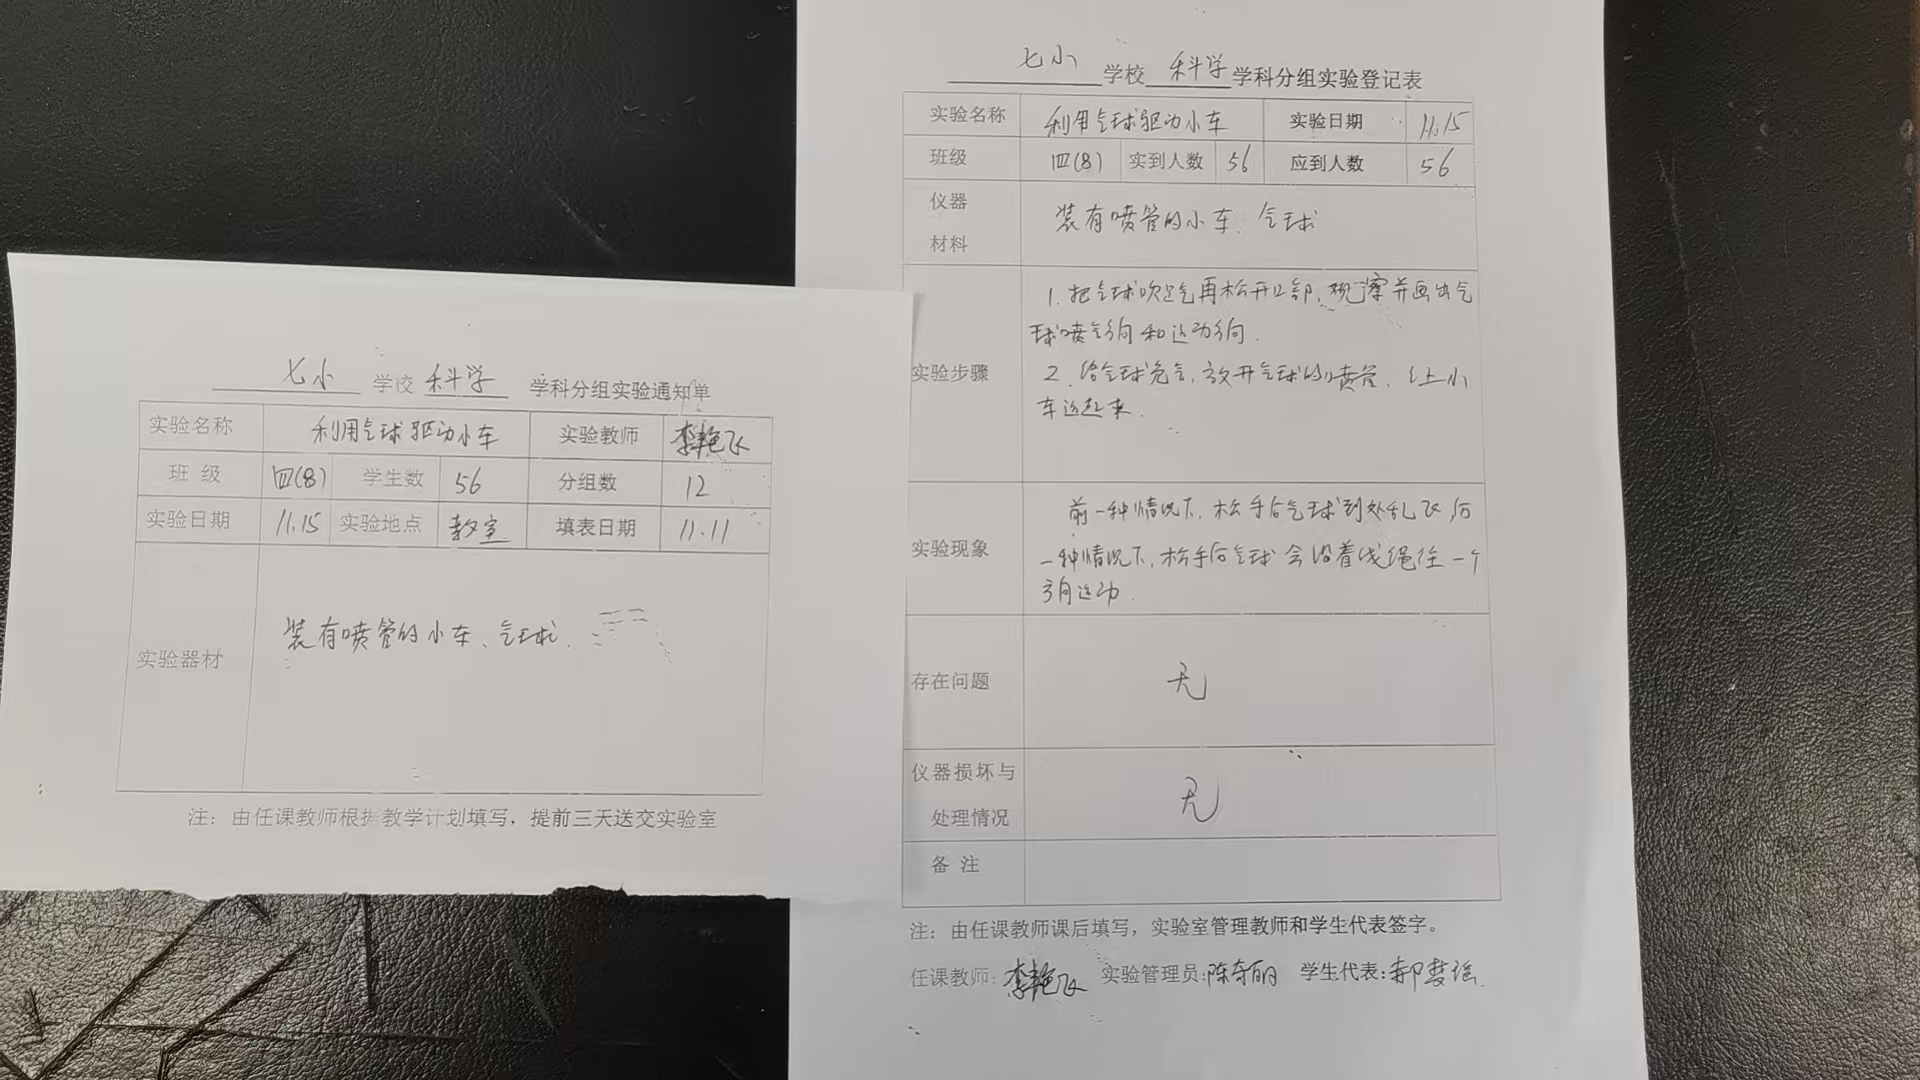 七小 学校 科学 学科分组实验通知单
实验名称 利用气球驱动小车 实验教师 李艳飞
班 级 四(8) 学生数 56 分组数 12
实验日期 11.15 实验地点 教室 填表日期 11.11
实验器材 装有喷管的小车、气球.
注：由任课教师根据教学计划填写，提前三天送交实验室
七小 学校 科学 学科分组实验登记表
实验名称 利用气球驱动小车 实验日期 11.15
班级 四(8) 实到人数 56 应到人数 56
仪器
材料
装有喷管的小车、气球
实验步骤
1. 把气球吹足气再松开口部，观察并画出气
球喷气方向和运动方向.
2. 给气球充气，放开气球的喷管，让小
车运起来.
实验现象
前一种情况下，松手后气球到处乱飞，后
一种情况下，松手后气球会沿着线绳往一个
方向运动.
存在问题 无
仪器损坏与
处理情况
无
备 注
注：由任课教师课后填写，实验室管理教师和学生代表签字。
任课教师: 李艳飞 实验管理员: 学生代表: